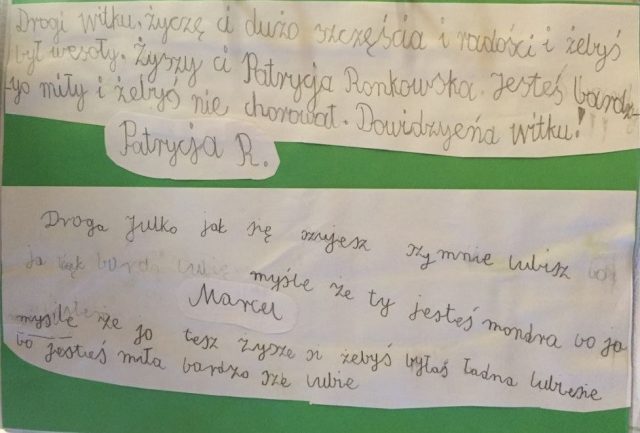 Drogi witku, życzę ci dużo szczęścia i radości i żebyś
był wesoły. Żyszy ci Patrycja Ronkowska. Jesteś bardz-
-yo miły i żebyś nie chorował. Dowidzyeńa witku!
Patrycja R.
Droga Julko jak się szujesz szy mnie lubisz bo
ja tak bardo lubię myśle że ty jesteś mondra bo ja
Marcel
myśle że jo tesz żysze ci żebyś byłaś ładna lubiesie
bo jesteś miła bardzo sze lubie